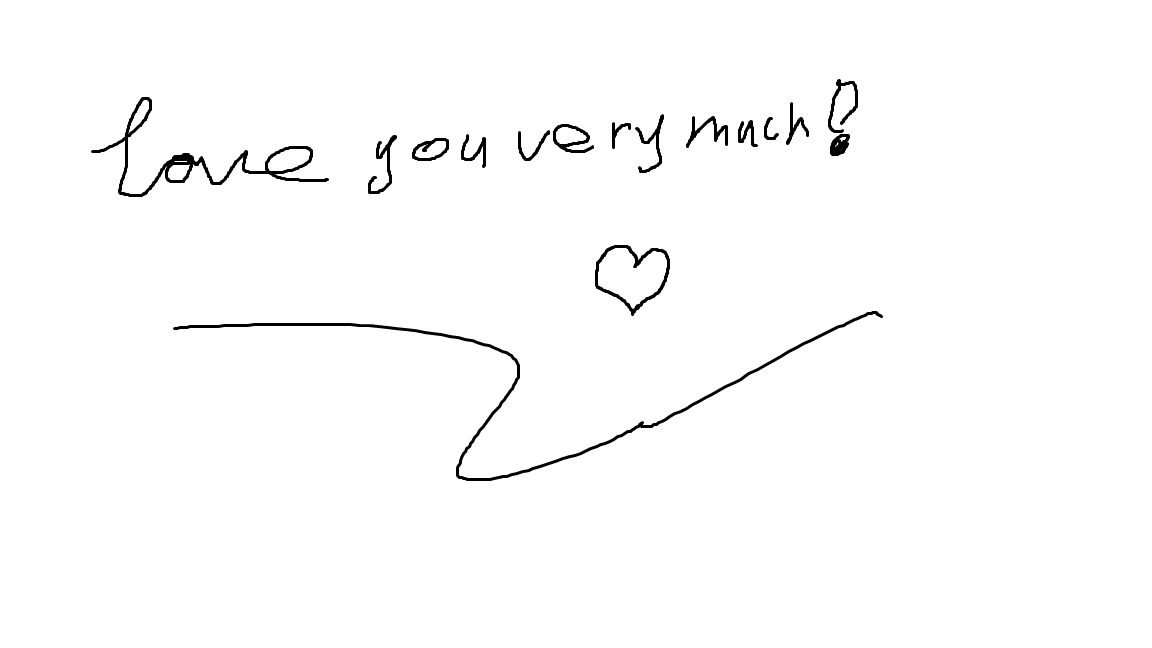 Love you very much!